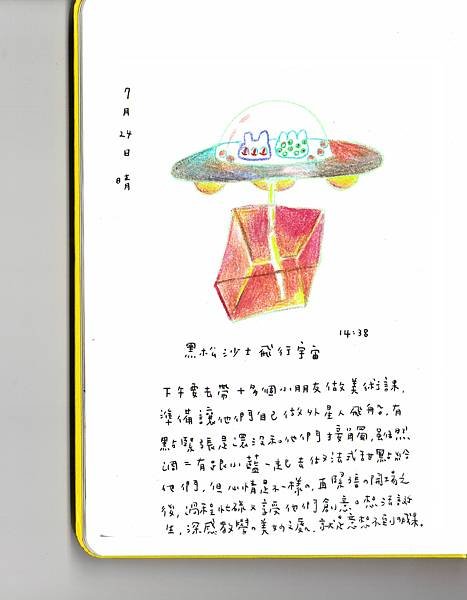 7月24日 晴
14:38
黑松沙士飛行宇宙
下午要去帶十多個小朋友做美術課,
準備讓他們自己做外星人飛船。有
點緊張是還沒和他們接觸,雖然
週二有跟小藍一起去做法式甜點給
他們,但心情是不一樣的。再緊張的開場之
後,過程忙碌又享受他們創意。想法誕
生,深感教學の美妙之處,就是意想不到成果。